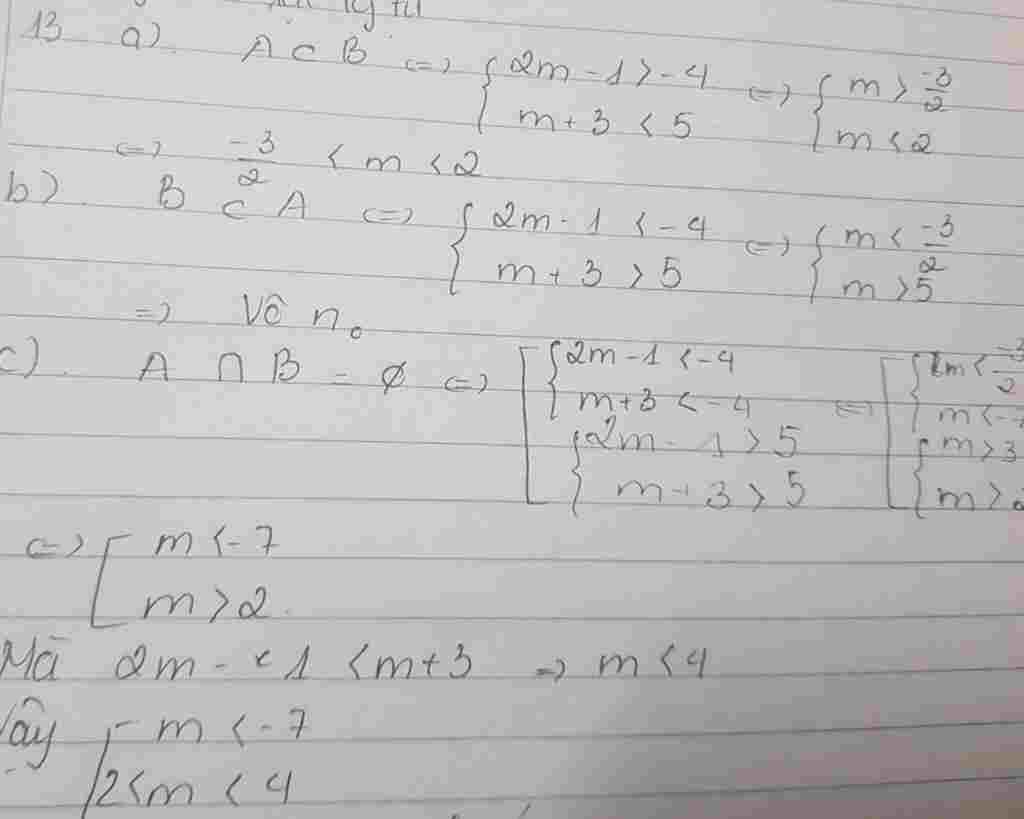 13 a) A ⊂ B <=> { 2m - 1 > -4 <=> { m > -3/2
m + 3 < 5 m < 2
<=> -3/2 < m < 2
b) B ⊂ A <=> { 2m - 1 < -4 <=> { m < -3/2
m + 3 > 5 m > 5
=> Vô n0
c) A ∩ B = ∅ <=> [ { 2m - 1 < -4 <=> [ { m < -3/2
m + 3 < -4 m < -7
{ 2m - 1 > 5 { m > 3
m + 3 > 5 m >
<=> [ m < -7
m > 2
Mà 2m - 1 < m + 3 => m < 4
Vậy [ m < -7
2 < m < 4